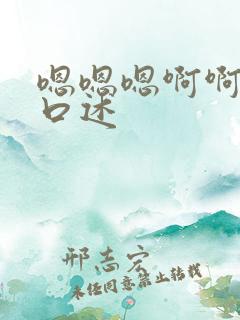 嗯嗯嗯啊啊
口述
邢志宏
未经同意禁止转载